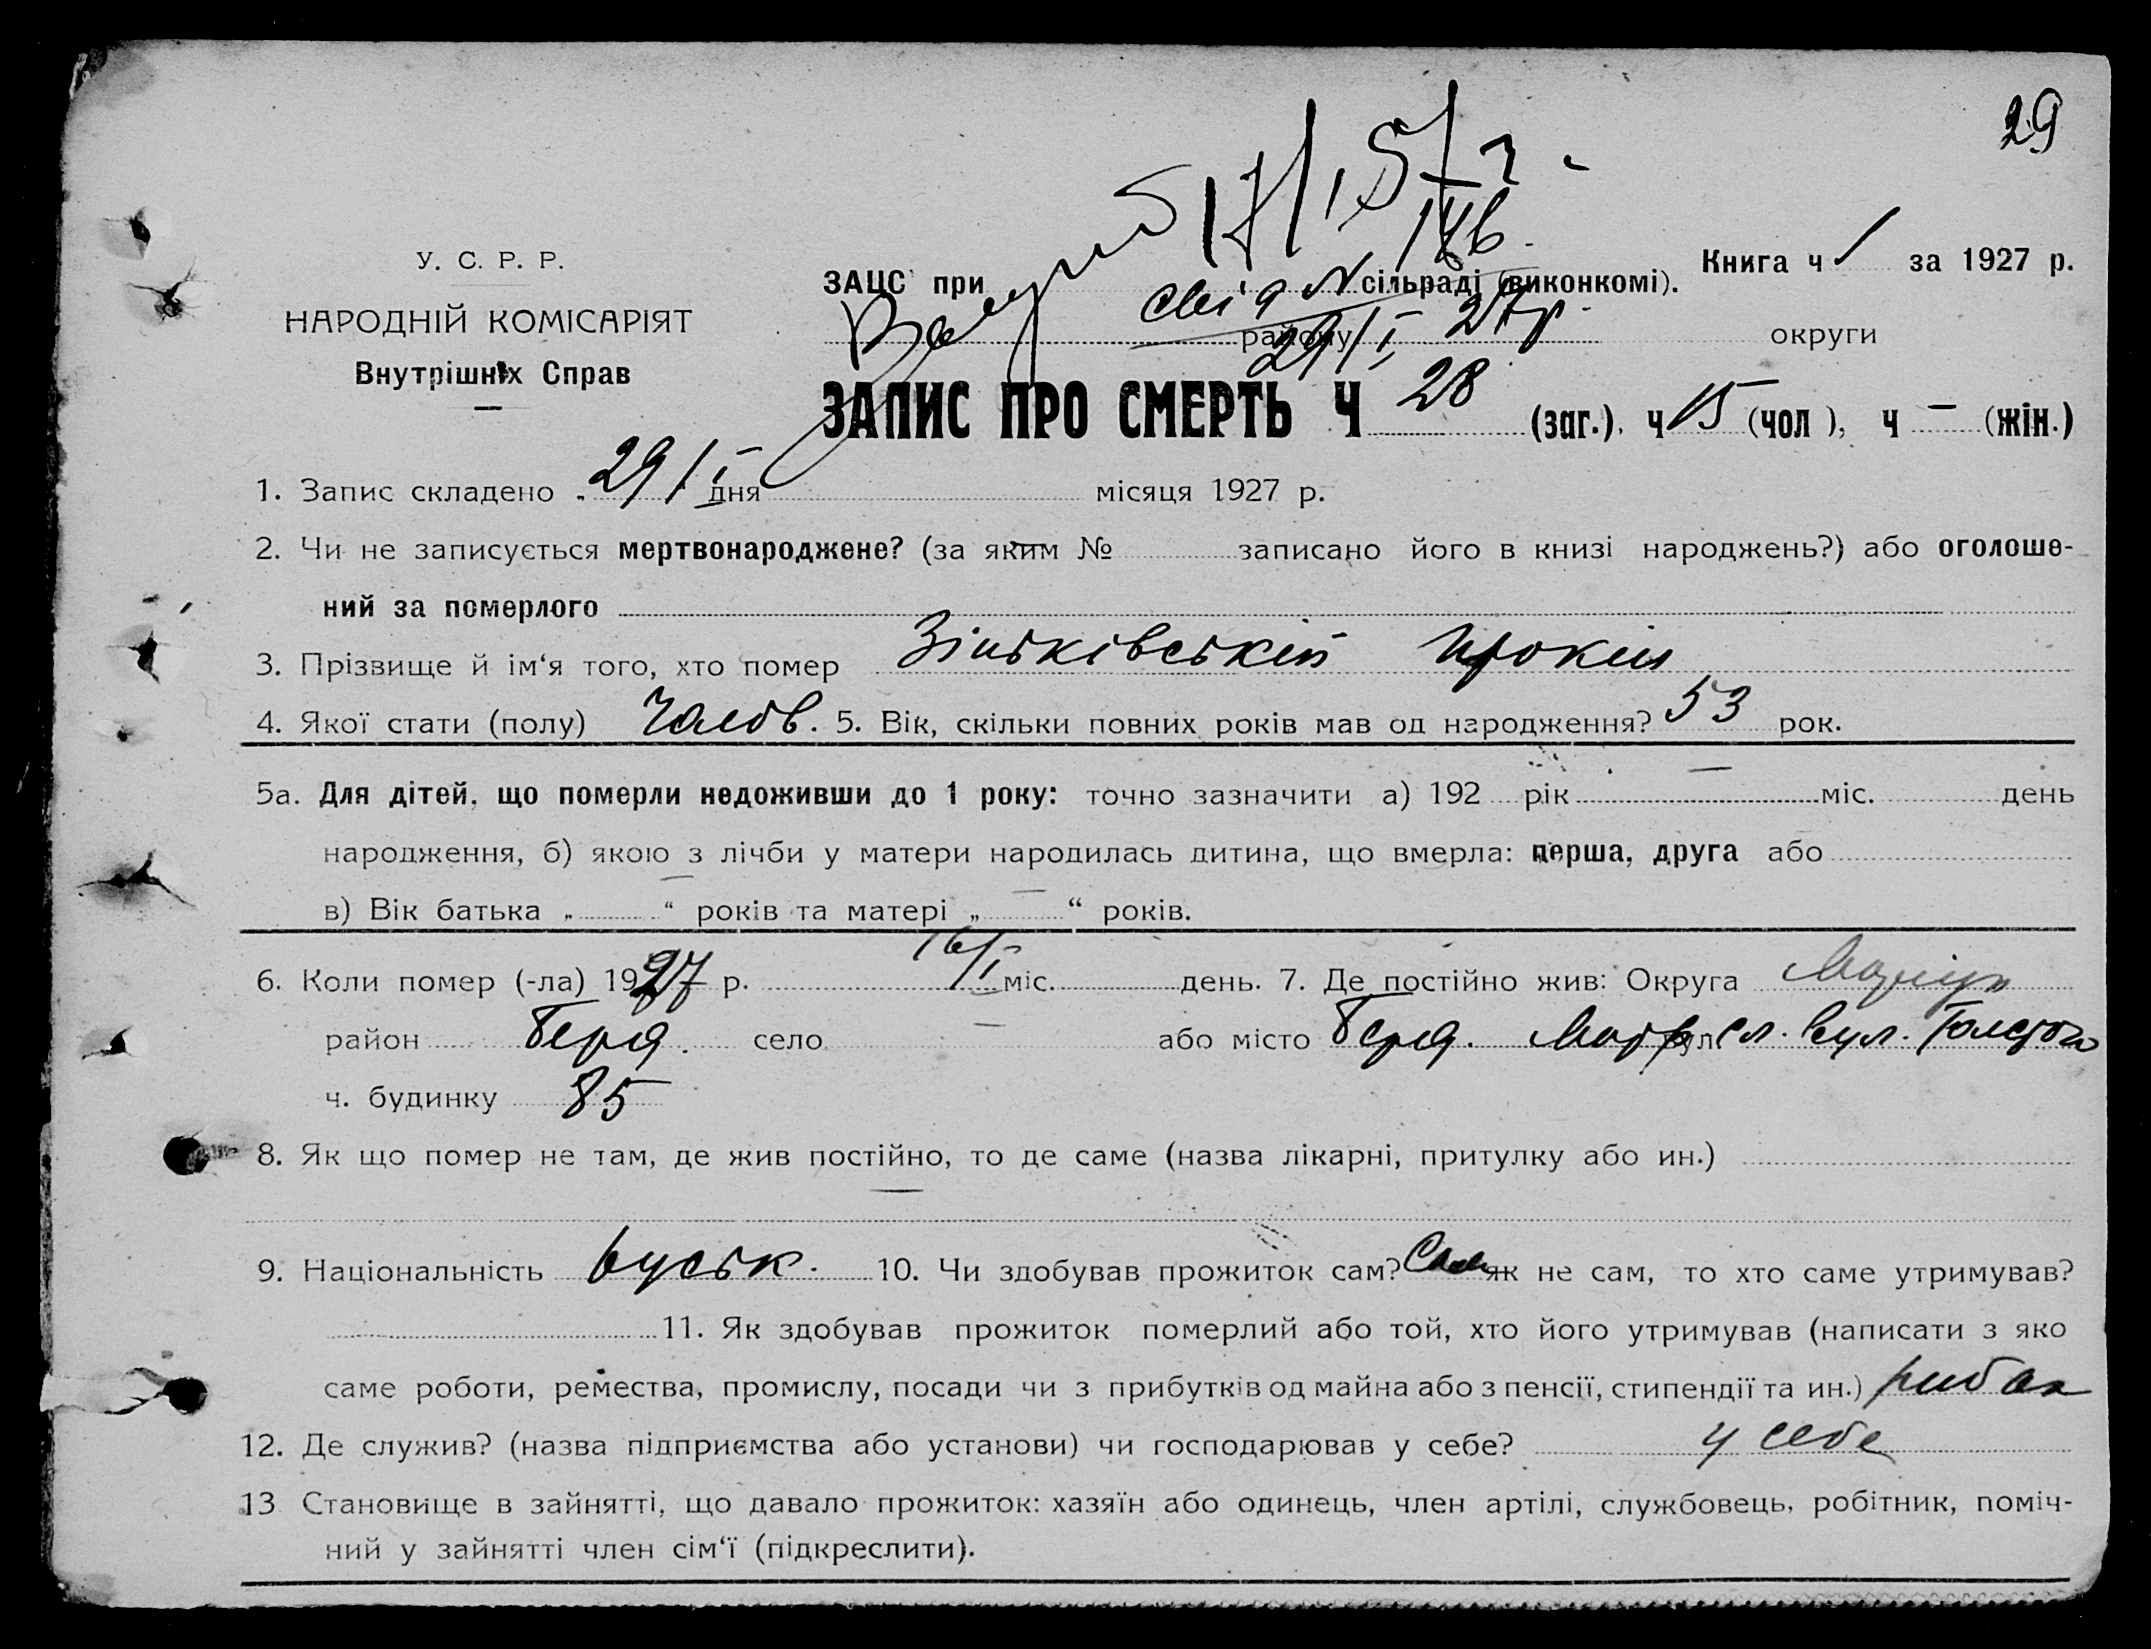 29
17/I 57 г.
У. С. Р. Р.
ЗАЦС при сільраді (виконкомі).
Книга ч 1 за 1927 р.
НАРОДНІЙ КОМІСАРІЯТ
району округи
Внутрішніх Справ
29/I 27 р.
ЗАПИС ПРО СМЕРТЬ Ч 28 (заг.), ч 15 (чол), ч — (жін.)
1. Запис складено „ 29/I дня місяця 1927 р.
2. Чи не записується мертвонароджене? (за яким № записано його в книзі народжень?) або оголоше-
ний за померлого
3. Прізвище й ім'я того, хто помер Зіньківській Прокіп
4. Якої стати (полу) Чолов. 5. Вік, скільки повних років мав од народження? 53 рок.
5а. Для дітей, що померли недоживши до 1 року: точно зазначити а) 192 рік — міс. день
народження, б) якою з лічби у матери народилась дитина, що вмерла: перша, друга або
в) Вік батька „ — “ років та матері „ — “ років.
6. Коли помер (-ла) 1927 р. 16/I міс. день. 7. Де постійно жив: Округа Маріуп
район Берд. село — або місто Берд. вул. Толстого
ч. будинку 85
8. Як що помер не там, де жив постійно, то де саме (назва лікарні, притулку або ин.)
—
9. Національність руськ. 10. Чи здобував прожиток сам? Сам як не сам, то хто саме утримував?
11. Як здобував прожиток померлий або той, хто його утримував (написати з яко
саме роботи, ремества, промислу, посади чи з прибутків од майна або з пенсії, стипендії та ин.) рибак
12. Де служив? (назва підприємства або установи) чи господарював у себе? у себе
13 Становище в зайнятті, що давало прожиток: хазяїн або одинець, член артілі, службовець, робітник, поміч-
ний у зайнятті член сім'ї (підкреслити).